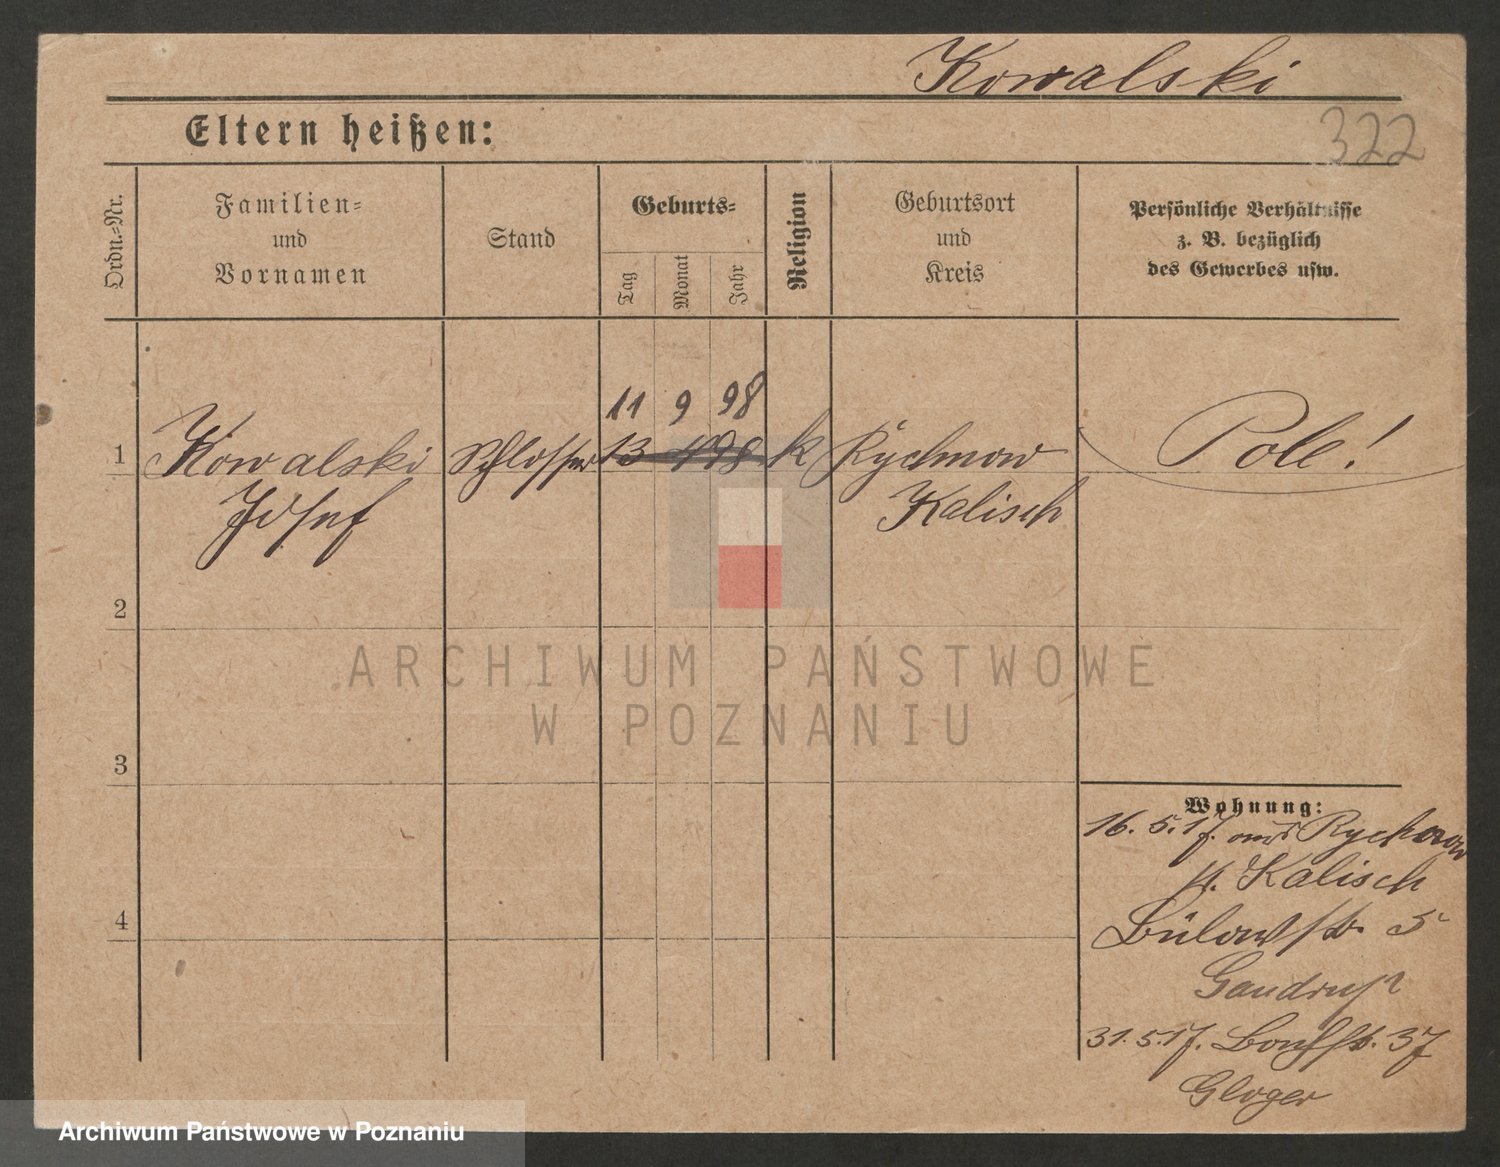 Kowalski
Eltern heißen:
322
Ordn.-Nr.
Familien-
und
Vornamen
Stand
Geburts-
Tag
Monat
Jahr
Religion
Geburtsort
und
Kreis
Persönliche Verhältnisse
z. B. bezüglich
des Gewerbes usw.
11 9 98
1 Kowalski Schlosser 13 4 98 k Rychnow Pole!
Josef Kalisch
2
ARCHIWUM PAŃSTWOWE
W POZNANIU
3
Wohnung:
16. 5. 17. aus Rychnow
Kalisch
4
Bülowstr. 5
31.5.17. 37
Gloger
Archiwum Państwowe w Poznaniu